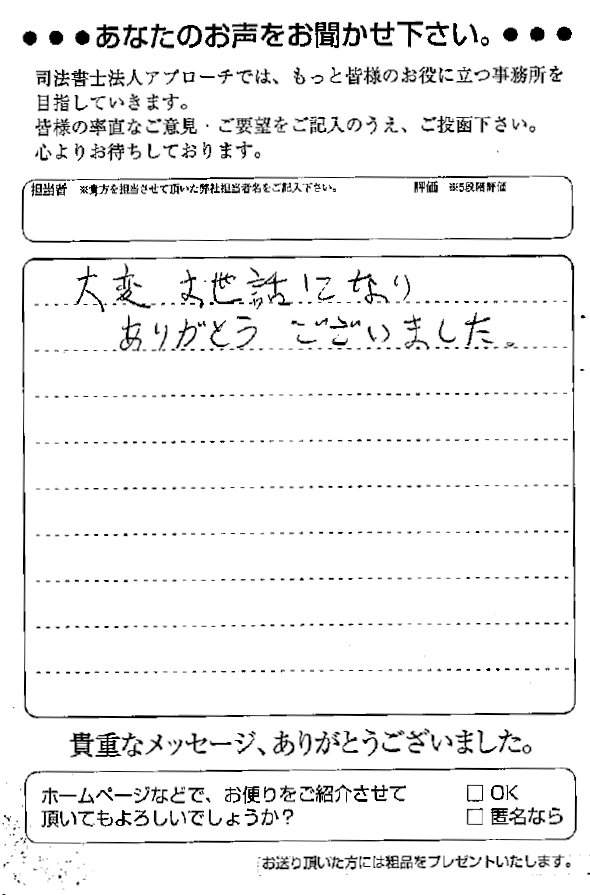 ●●●あなたのお声をお聞かせ下さい。●●●
司法書士法人アプローチでは、もっと皆様のお役に立つ事務所を
目指していきます。
皆様の率直なご意見・ご要望をご記入のうえ、ご投函下さい。
心よりお待ちしております。
担当者 ※貴方を担当させて頂いた弊社担当者名をご記入下さい。 評価 ※5段階評価
大変 お世話になり
ありがとう ございました。
貴重なメッセージ、ありがとうございました。
ホームページなどで、お便りをご紹介させて □ OK
頂いてもよろしいでしょうか? □ 匿名なら
お送り頂いた方には粗品をプレゼントいたします。